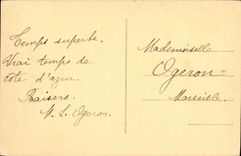 Temps superbe.
Vrai temps de
côte d'azur.
Baisers
M. L. Ogeron.
Mademoiselle
Ogeron
Marseille.